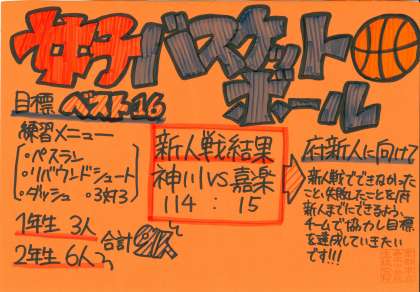 女子バスケット
ボール
目標 ベスト16
練習メニュー
・パスラン
・リバウンドシュート
・ダッシュ ・3対3
1年生 3人
2年生 6人
合計 9人
新人戦結果
神川 VS 嘉楽
114 : 15
府新人に向けて
新人戦でできなかった
こと、失敗したことを府
新人までにできるよう、
チームで協力し目標
を達成していきたい
です!!!